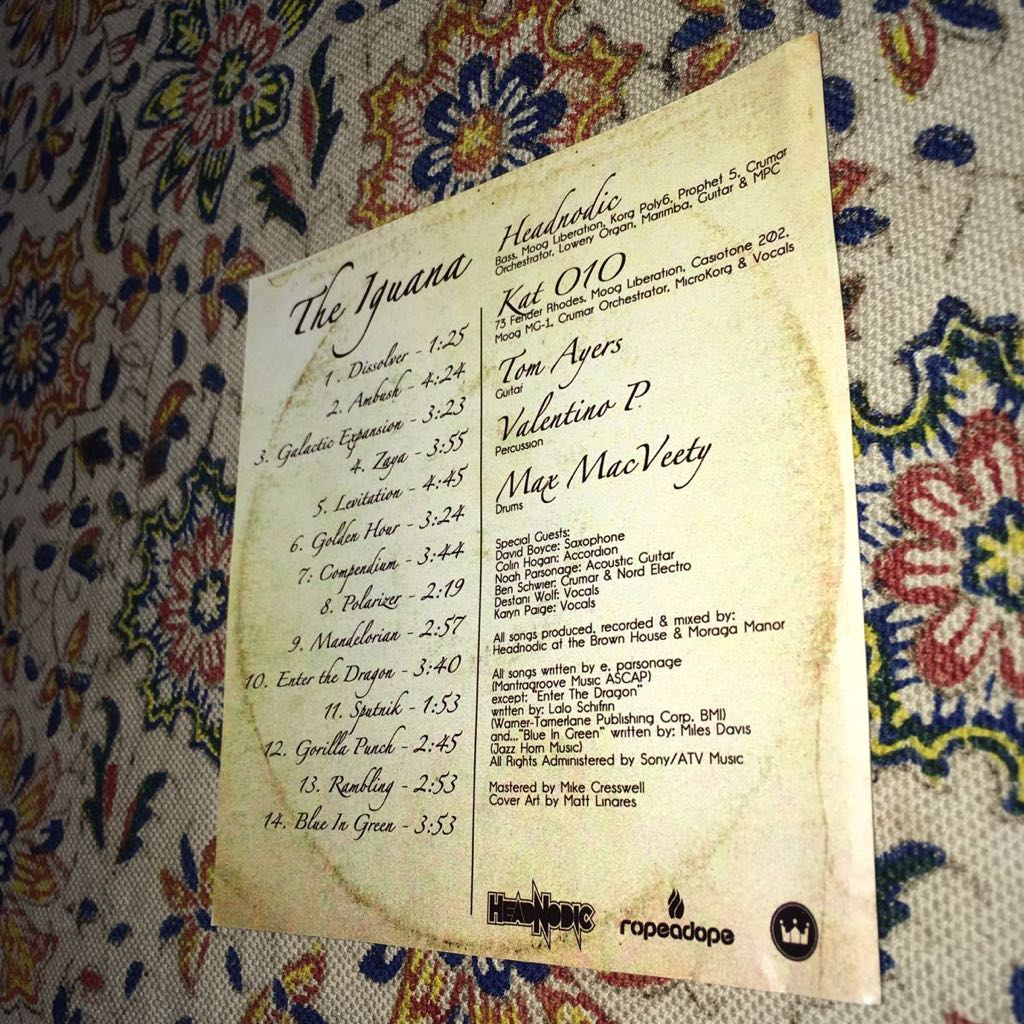 The Iguana
1. Dissolver - 1:25
2. Ambush - 4:24
3. Galactic Expansion - 3:23
4. Zaya - 3:55
5. Levitation - 4:45
6. Golden Hour - 3:24
7: Compendium - 3:44
8. Polarizer - 2:19
9. Mandelorian - 2:57
10. Enter the Dragon - 3:40
11. Sputnik - 1:53
12. Gorilla Punch - 2:45
13. Rambling - 2:53
14. Blue In Green - 3:53
Headnodic
Bass, Moog Liberation, Korg Poly6, Prophet 5, Crumar
Orchestrator, Lowery Organ, Marimba, Guitar & MPC
Kat O1O
73 Fender Rhodes, Moog Liberation, Casiotone 202,
Moog MG-1, Crumar Orchestrator, MicroKorg & Vocals
Tom Ayers
Guitar
Valentino P.
Percussion
Max MacVeety
Drums
Special Guests:
David Boyce: Saxophone
Colin Hogan: Accordion
Noah Parsonage: Acoustic Guitar
Ben Schwier: Crumar & Nord Electro
Destani Wolf: Vocals
Karyn Paige: Vocals
All songs produced, recorded & mixed by:
Headnodic at the Brown House & Moraga Manor
All songs written by e. parsonage
(Mantragroove Music ASCAP)
except: "Enter The Dragon"
written by: Lalo Schifrin
(Warner-Tamerlane Publishing Corp. BMI)
and..."Blue In Green" written by: Miles Davis
(Jazz Horn Music)
All Rights Administered by Sony/ATV Music
Mastered by Mike Cresswell
Cover Art by Matt Linares
HEADNODIC
ropeadope